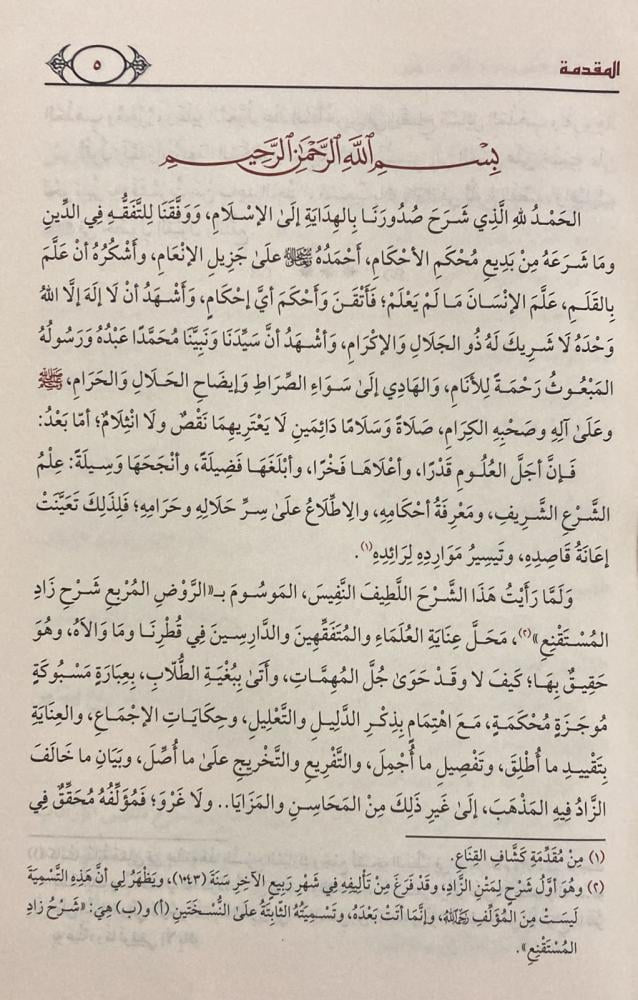 المقدمة
٥
بِسْمِ ٱللَّهِ ٱلرَّحْمَٰنِ ٱلرَّحِيمِ
الحَمْدُ للهِ الَّذِي شَرَحَ صُدُورَنَا بِالهِدَايَةِ إلَىٰ الإسْلَامِ، وَوَفَّقَنَا لِلتَّفَقُّهِ فِي الدِّينِ
وما شَرَعَهُ مِنْ بَدِيعِ مُحْكَمِ الأحْكَامِ، أحْمَدُهُ ﷻ علَىٰ جَزِيلِ الإنْعَامِ، وأَشْكُرُهُ أنْ علَّمَ
بِالقَلَمِ، علَّمَ الإنْسَانَ مَا لَمْ يَعْلَمْ؛ فَأَتْقَنَ وَأَحْكَمَ أيَّ إحْكَامٍ، وَأَشْهَدُ أنْ لَا إلَهَ إلَّا اللهُ
وَحْدَهُ لَا شَرِيكَ لَهُ ذُو الجَلَالِ وَالإكْرَامِ، وَأشْهَدُ أنَّ سَيِّدَنَا وَنَبِيَّنَا مُحَمَّدًا عَبْدُهُ وَرَسُولُهُ
المَبْعُوثُ رَحْمَةً لِلأنَامِ، وَالهَادِي إلَىٰ سَوَاءِ الصِّرَاطِ وَإيضَاحِ الحَلَالِ وَالحَرَامِ، ﷺ
وعلَىٰ آلِهِ وصَحْبِهِ الكِرَامِ، صَلَاةً وَسَلَامًا دَائِمَينِ لَا يَعْتَرِيهِمَا نَقْصٌ ولَا انْثِلَامٌ؛ أمّا بَعْدُ:
فَإنَّ أجَلَّ العُلُومِ قَدْرًا، وأعْلَاهَا فَخْرًا، وأبْلَغَهَا فَضِيلَةً، وأنْجَحَهَا وَسِيلَةً: عِلْمُ
الشَّرْعِ الشَّرِيفِ، ومَعْرِفَةُ أحْكَامِهِ، والِاطِّلَاعُ علَىٰ سِرِّ حَلَالِهِ وحَرَامِهِ؛ فَلِذَلِكَ تَعَيَّنَتْ
إعَانَةُ قَاصِدِهِ، وتَيسِيرُ مَوَارِدِهِ لِرَائِدِهِ(١).
وَلَمَّا رَأَيْتُ هَذَا الشَّرْحَ اللَّطِيفَ النَّفِيسَ، المَوسُومَ بـ«الرَّوْضِ المُرْبِعِ شَرْحِ زَادِ
المُسْتَقْنِعِ»(٢)، مَحَلَّ عِنَايَةِ العُلَمَاءِ والمُتَفَقِّهِينَ والدَّارِسِينَ فِي قُطْرِنَا ومَا وَالَاهُ، وهُوَ
حَقِيقٌ بِهَا؛ كَيفَ لا وقَدْ حَوَىٰ جُلَّ المُهِمَّاتِ، وأتَىٰ بِبُغْيَةِ الطُّلَّابِ، بِعِبَارَةٍ مَسْبُوكَةٍ
مُوجَزَةٍ مُحْكَمَةٍ، مَعَ اهْتِمَامٍ بِذِكْرِ الدَّلِيلِ والتَّعْلِيلِ، وحِكَايَاتِ الإجْمَاعِ، والعِنَايَةِ
بِتَقْيِيدِ ما أُطْلِقَ، وتَفْصِيلِ ما أُجْمِلَ، والتَّفْرِيعِ والتَّخْرِيجِ علَىٰ ما أُصِّلَ، وبَيَانِ ما خَالَفَ
الزَّادُ فِيهِ المَذْهَبَ، إلَىٰ غَيرِ ذَلِكَ مِنْ المَحَاسِنِ والمَزَايَا.. ولَا غَرْوَ؛ فَمُؤَلِّفُهُ مُحَقِّقٌ فِي
(١) مِنْ مُقَدِّمَةِ كَشَّافِ القِنَاعِ.
(٢) وهُوَ أوَّلُ شَرْحٍ لِمَتْنِ الزَّادِ، وقَدْ فَرَغَ مِنْ تَألِيفِهِ فِي شَهْرِ رَبِيعِ الآخِرِ سَنَةَ (١٠٤٣)، ويَظْهَرُ لِي أنَّ هَذِهِ التَّسْمِيَةَ
لَيسَتْ مِنَ المُؤَلِّفِ رَحِمَهُ اللَّهُ، وإنَّمَا أتَتْ بَعْدَهُ، وتَسْمِيَتُهُ الثَّابِتَةُ علَىٰ النُّسْخَتَينِ (أ) و(ب) هِيَ: «شَرْحُ زادِ
المُسْتَقْنِعِ».